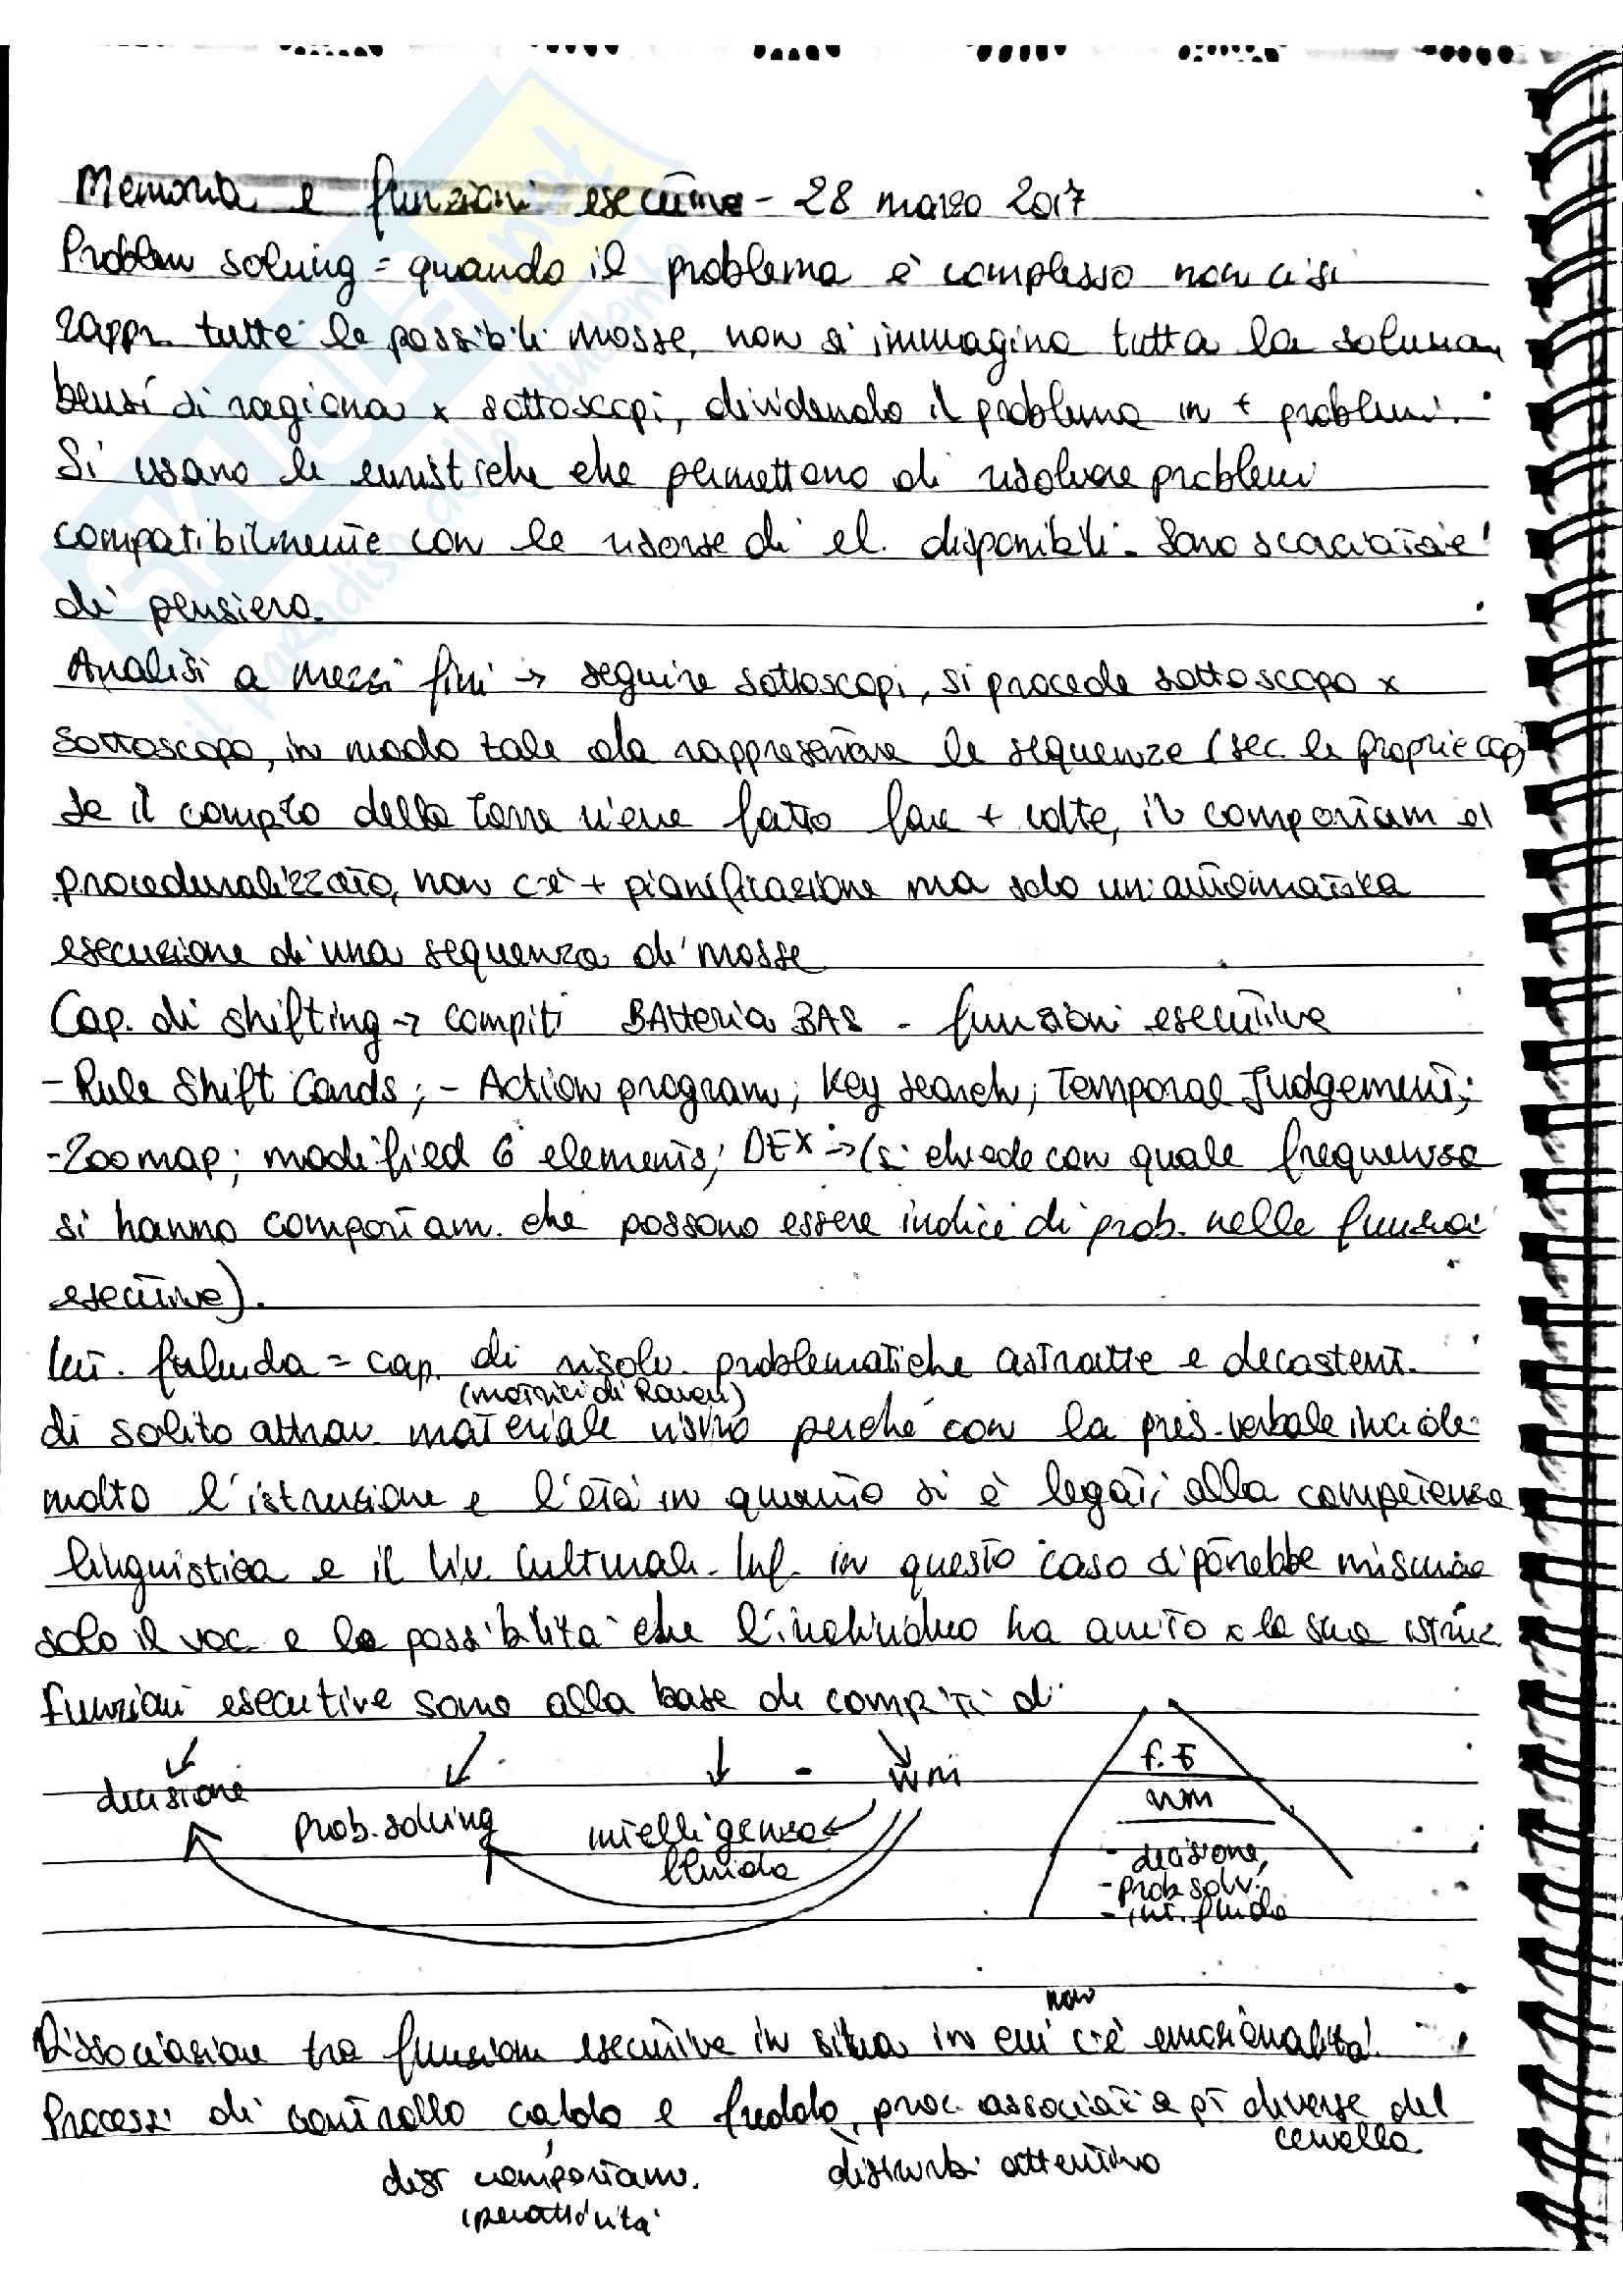 Memoria e funzioni esecutive - 28 marzo 2017
Problem solving = quando il problema è complesso non ci si
rappr. tutte le possibili mosse, non si immagina tutta la soluzion
bensì si ragiona x sottoscopi, dividendo il problema in + problemi.
Si usano le euristiche che permettono di risolvere problemi
compatibilmente con le risorse di el. disponibili. Sono scorciatoie
di pensiero.
Analisi a mezzi fini → seguire sottoscopi, si procede sottoscopo x
sottoscopo, in modo tale da rappresentare le sequenze (sec. le proprie cap)
se il compito della torre viene fatto fare + volte, il comportam è
procedurralizzato, non c'è + pianificazione ma solo un'automatica
esecuzione di una sequenza di mosse
Cap. di shifting → compiti BAtteria BAS - funzioni esecutive
- Rule Shift Cards; - Action program; Key search; Temporal Judgement;
- Zoo map; modified 6 elements; DEX → (si chiede con quale frequenza
si hanno comportam. che possono essere indici di prob. nelle funzioi
esecutive).
Int. fuluida = cap. di risolv. problematiche astratte e decostent.
(matrici di Raven)
di solito attrav. materiale visivo perché con la pres. verbale incide
molto l'istruzione e l'età in quanto si è legati alla competenza
linguistica e il liv. culturale. Inf. in questo caso si potrebbe misurare
solo il voc. e la possibilità che l'individuo ha avuto x la sua istruz.
Funzioni esecutive sono alla base di compiti di
decisione
Prob. solving
intelligenza
fluida
WM
f. E
wm
- decisione,
- prob solv.
- int. fluida
non
Dissociazione tra funzioni esecutive in situa in cui c'è emozionalità.
Processi di controllo caldo e freddo, proc. associati a pt diverse del
cervello
dist comportam.
iperattività
disturbi attentivo
SKUOLA.net
il paradiso dello studente